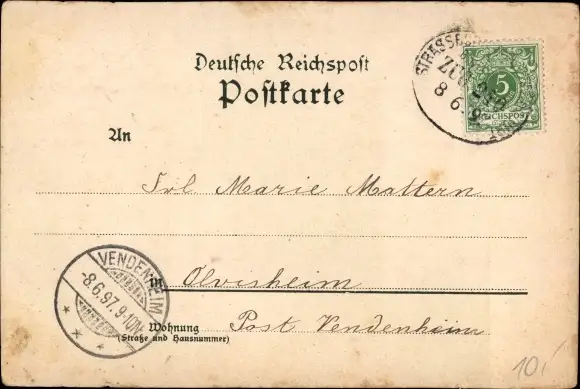 Deutsche Reichspost
Postkarte
5
REICHSPOST
8 6
An
Frl Marie Mattern
VENDENHEIM
-8.6.97. 9-10N.
in Olvisheim
Wohnung Post Vendenheim
(Straße und Hausnummer)
10.-